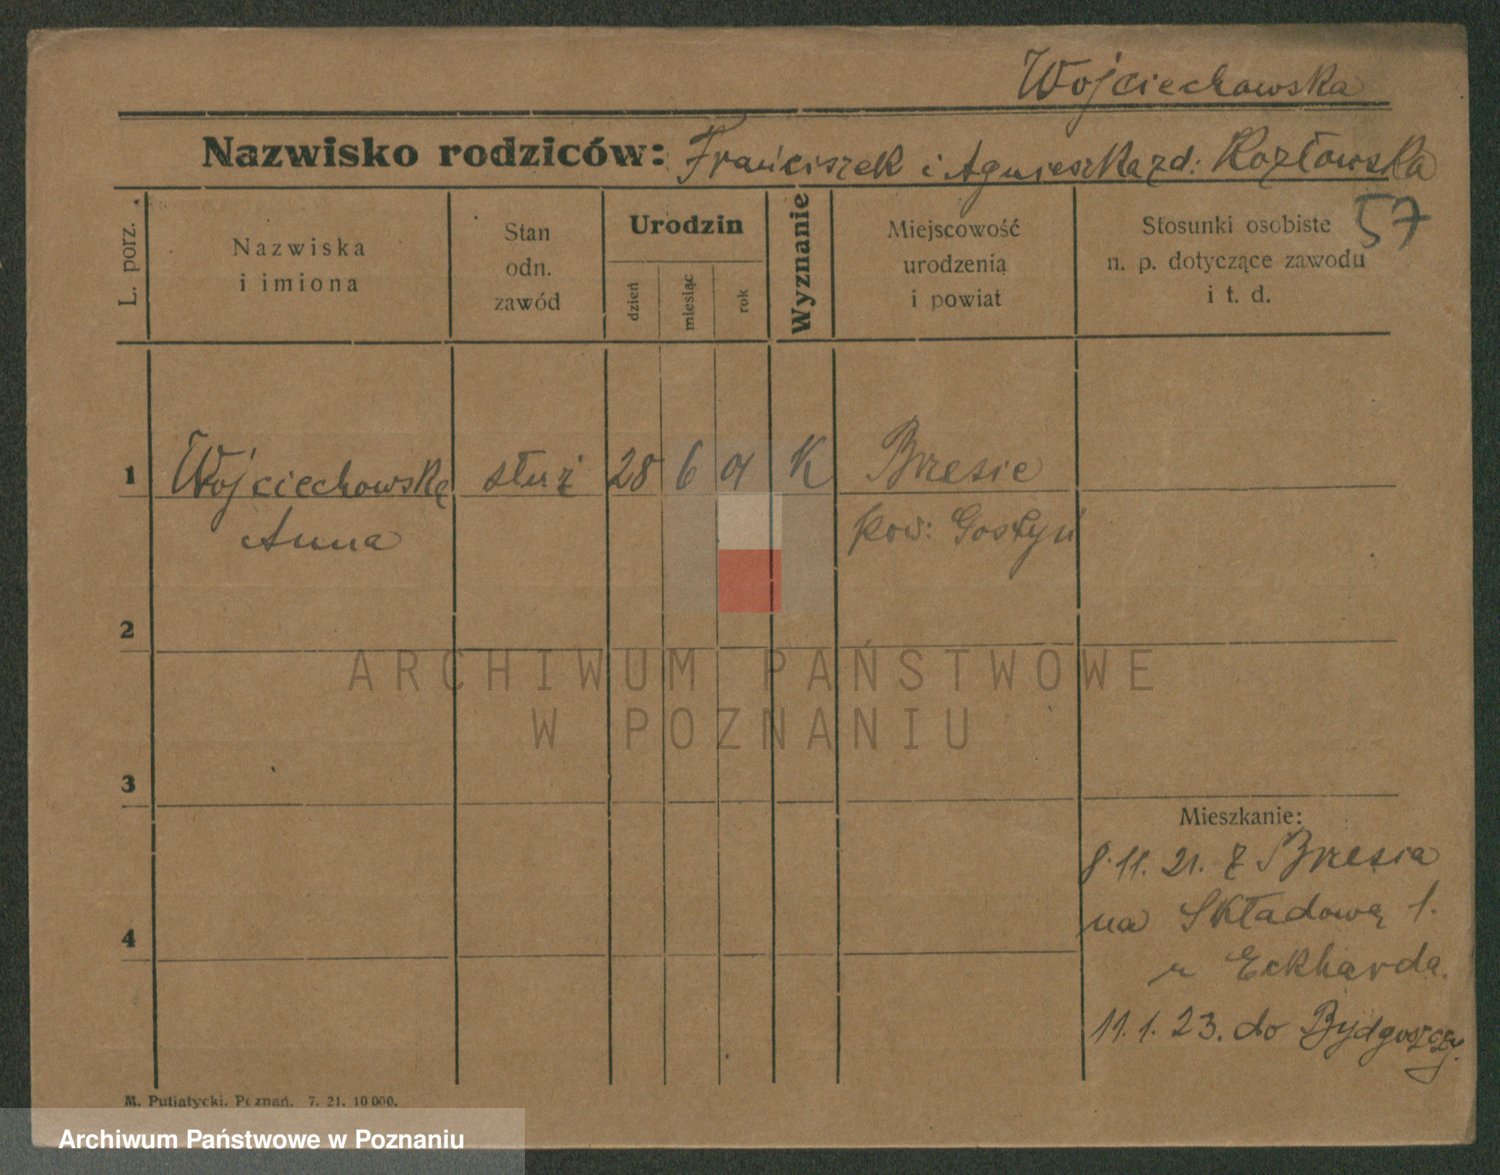 Wojciechowska
Nazwisko rodziców: Franciszek i Agnieszka zd: Kozłowska
57
L. porz.
Nazwiska
i imiona
Stan
odn.
zawód
Urodzin
dzień
miesiąc
rok
Wyznanie
Miejscowość
urodzenia
i powiat
Stosunki osobiste
n. p. dotyczące zawodu
i t. d.
1 Wojciechowska służ 28 6 01 K Brzesie
Anna pow: Gostyń
2
ARCHIWUM PAŃSTWOWE
W POZNANIU
3
Mieszkanie:
8.11.21. z Brzesia
na Składową 1.
u Eckharda.
4
11.1.23. do Bydgoszczy.
M. Putiatycki. Poznań. 7. 21. 10000.
Archiwum Państwowe w Poznaniu